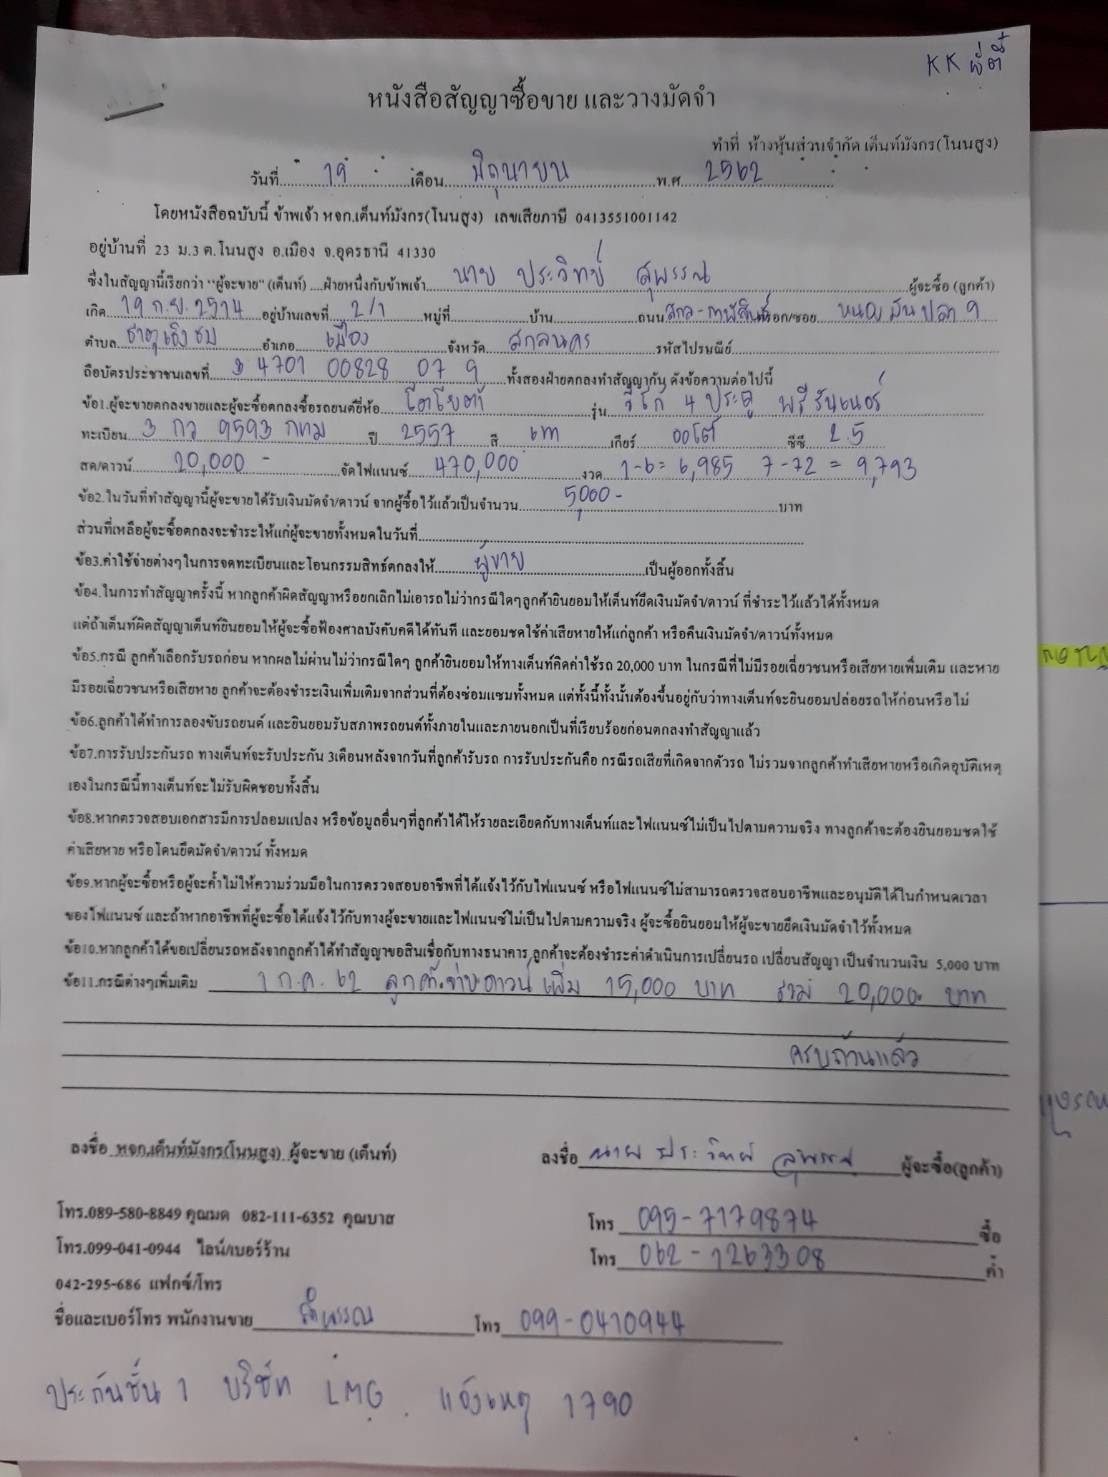 KK
หนังสือสัญญาซื้อขาย และวางมัดจำ
ทำที่ ห้างหุ้นส่วนจำกัด เต็นท์มังกร(โนนสูง)
วันที่ 19 เดือน มิถุนายน พ.ศ. 2562
โดยหนังสือฉบับนี้ ข้าพเจ้า หจก.เต็นท์มังกร(โนนสูง) เลขเสียภาษี 0413551001142
อยู่บ้านที่ 23 ม.3 ต.โนนสูง อ.เมือง จ.อุดรธานี 41330
ซึ่งในสัญญานี้เรียกว่า "ผู้จะขาย" (เต็นท์) ....ฝ่ายหนึ่งกับข้าพเจ้า นาย ประวิทย์ สุพรรณ ผู้จะซื้อ (ลูกค้า)
เกิด 19 ก.ย. 2514 อยู่บ้านเลขที่ 2/1 หมู่ที่ บ้าน ถนน สกล-กาฬสินธุ์ ตรอก/ซอย
ตำบล ธาตุเชิงชุม อำเภอ เมือง จังหวัด สกลนคร รหัสไปรษณีย์
ถือบัตรประชาชนเลขที่ 3 4701 00828 07 9 ทั้งสองฝ่ายตกลงทำสัญญากัน ดังข้อความต่อไปนี้
ข้อ1.ผู้จะขายตกลงขายและผู้จะซื้อตกลงซื้อรถยนต์ยี่ห้อ โตโยต้า รุ่น วีโก้ 4 ประตู พรีรันเนอร์
ทะเบียน 3 กว 9593 กทม ปี 2557 สี เทา เกียร์ ออโต้ ซีซี 2.5
สด/ดาวน์ 20,000 - จัดไฟแนนซ์ 470,000 งวด 1-6 = 6,985 7-72 = 9,793
ข้อ2.ในวันที่ทำสัญญานี้ผู้จะขายได้รับเงินมัดจำ/ดาวน์ จากผู้ซื้อไว้แล้วเป็นจำนวน 5,000 - บาท
ส่วนที่เหลือผู้จะซื้อตกลงจะชำระให้แก่ผู้จะขายทั้งหมดในวันที่
ข้อ3.ค่าใช้จ่ายต่างๆในการจดทะเบียนและโอนกรรมสิทธ์ตกลงให้ ผู้ขาย เป็นผู้ออกทั้งสิ้น
ข้อ4.ในการทำสัญญาครั้งนี้ หากลูกค้าผิดสัญญาหรือยกเลิกไม่เอารถไม่ว่ากรณีใดๆลูกค้ายินยอมให้เต็นท์ยึดเงินมัดจำ/ดาวน์ ที่ชำระไว้แล้วได้ทั้งหมด
แต่ถ้าเต็นท์ผิดสัญญาเต็นท์ยินยอมให้ผู้จะซื้อฟ้องศาลบังคับคดีได้ทันที และยอมชดใช้ค่าเสียหายให้แก่ลูกค้า หรือคืนเงินมัดจำ/ดาวน์ทั้งหมด
ข้อ5.กรณี ลูกค้าเลือกรับรถก่อน หากผลไม่ผ่านไม่ว่ากรณีใดๆ ลูกค้ายินยอมให้ทางเต็นท์คิดค่าใช้รถ 20,000 บาท ในกรณีที่ไม่มีรอยเฉี่ยวชนหรือเสียหายเพิ่มเติม และหาย
มีรอยเฉี่ยวชนหรือเสียหาย ลูกค้าจะต้องชำระเงินเพิ่มเติมจากส่วนที่ต้องซ่อมแซมทั้งหมด แต่ทั้งนี้ทั้งนั้นต้องขึ้นอยู่กับว่าทางเต็นท์จะยินยอมปล่อยรถให้ก่อนหรือไม่
ข้อ6.ลูกค้าได้ทำการลองขับรถยนต์ และยินยอมรับสภาพรถยนต์ทั้งภายในและภายนอกเป็นที่เรียบร้อยก่อนตกลงทำสัญญาแล้ว
ข้อ7.การรับประกันรถ ทางเต็นท์จะรับประกัน 3เดือนหลังจากวันที่ลูกค้ารับรถ การรับประกันคือ กรณีรถเสียที่เกิดจากตัวรถ ไม่รวมจากลูกค้าทำเสียหายหรือเกิดอุบัติเหตุ
เองในกรณีนี้ทางเต็นท์จะไม่รับผิดชอบทั้งสิ้น
ข้อ8.หากตรวจสอบเอกสารมีการปลอมแปลง หรือข้อมูลอื่นๆที่ลูกค้าได้ให้รายละเอียดกับทางเต็นท์และไฟแนนซ์ไม่เป็นไปตามความจริง ทางลูกค้าจะต้องยินยอมชดใช้
ค่าเสียหาย หรือโดนยึดมัดจำ/ดาวน์ ทั้งหมด
ข้อ9.หากผู้จะซื้อหรือผู้จะค้ำไม่ให้ความร่วมมือในการตรวจสอบอาชีพที่ได้แจ้งไว้กับไฟแนนซ์ หรือไฟแนนซ์ไม่สามารถตรวจสอบอาชีพและอนุมัติได้ในกำหนดเวลา
ของไฟแนนซ์ และถ้าหากอาชีพที่ผู้จะซื้อได้แจ้งไว้กับทางผู้จะขายและไฟแนนซ์ไม่เป็นไปตามความจริง ผู้จะซื้อยินยอมให้ผู้จะขายยึดเงินมัดจำไว้ทั้งหมด
ข้อ10.หากลูกค้าได้ขอเปลี่ยนรถหลังจากลูกค้าได้ทำสัญญาขอสินเชื่อกับทางธนาคาร ลูกค้าจะต้องชำระค่าดำเนินการเปลี่ยนรถ เปลี่ยนสัญญา เป็นจำนวนเงิน 5,000 บาท
ข้อ11.กรณีต่างๆเพิ่มเติม 1 ก.ค. 62 ลูกค้าจ่ายดาวน์เพิ่ม 15,000 บาท รวม 20,000 บาท
ครบถ้วนแล้ว
ลงชื่อ หจก.เต็นท์มังกร(โนนสูง) ผู้จะขาย (เต็นท์) ลงชื่อ นาย ประวิทย์ สุพรรณ ผู้จะซื้อ(ลูกค้า)
โทร.089-580-8849 คุณมด 082-111-6352 คุณบาส โทร 095-7179874 ซื้อ
โทร.099-041-0944 ไลน์/เบอร์ร้าน โทร 062-1263308 ค้ำ
042-295-686 แฟกซ์/โทร
ชื่อและเบอร์โทร พนักงานขาย โทร 099-0410944
ประกันชั้น 1 บริษัท LMG แจ้งเหตุ 1790